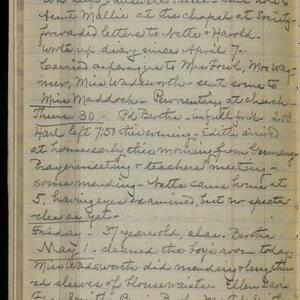 Aunt Mollie at the chapel at Society -
forwarded letters to Nette & Harold -
wrote up diary since April 7 -
Carried asparagus to Mrs Ford, Mrs Wag
ner, Miss Wadsworth - sent some to
Miss Maddock - at church -
Thurs 30 - P'd Bertha - in full for d - 2.00
Karl left 7:50 this evening - Edith arrived
at house early this morning from Germany -
Prayer meeting & teachers' meeting -
some mending - Nette came home at
5, having eyes examined, but no specta-
cles as yet -
Friday - 37 years old, alas. Bertha
May 1 - cleaned the boys' room today -
Miss Wadsworth did mending & length
ed sleeves of